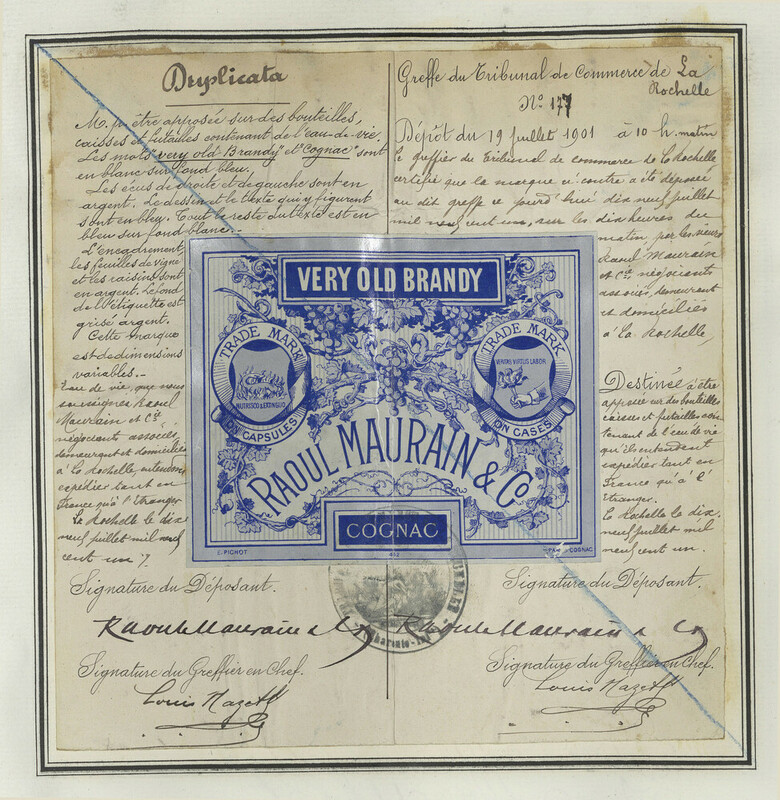 Duplicata
M. p. être apposée sur des bouteilles,
caisses et futailles contenant de l'eau-de-vie.
Les mots "very old Brandy" et "Cognac" sont
en blanc sur fond bleu.
Les écus de droite et de gauche sont en
argent. Le dessin et le texte qui y figurent
sont en bleu. Tout le reste du texte est en
bleu sur fond blanc.-
L'encadrement,
les feuilles de vigne
et les raisins sont
en argent. Le fond
de l'étiquette est
grisé argent.
Cette marque
est de dimensions
variables.-
Eau de vie, que nous
soussignés Raoul
Maurain et Cie
négociants associés,
demeurant et domiciliés
à La Rochelle, entendons
expédier tant en
France qu'à l'étranger
La Rochelle le dix
neuf juillet mil neuf
cent un
Signature du Déposant.
Raoul Maurain &
Signature du Greffier en Chef.
Louis Nazet
Greffe du Tribunal de Commerce de La
Rochelle
No. 177
Dépôt du 19 juillet 1901 à 10 h. matin
Le greffier du Tribunal de commerce de La Rochelle
certifie que la marque ci contre a été déposée
au dit greffe ce jourd'hui dix neuf juillet
mil neuf cent un, sur les dix heures du
matin, par les sieurs
Raoul Maurain
et Cie négociants
associés, demeurant
et domiciliés
à La Rochelle,
Destinée à être
apposée sur des bouteilles
caisses et futailles con-
tenant de l'eau de vie
qu'ils entendent
expédier tant en
France qu'à l'
étranger.
La Rochelle le dix
neuf juillet mil
neuf cent un.
Signature du Déposant.
Raoul Maurain &
Signature du Greffier en Chef.
Louis Nazet
VERY OLD BRANDY
TRADE MARK
NUTRISCO & EXTINGUO
ON CAPSULES
TRADE MARK
VERITAS VIRTUS LABOR
ON CASES
RAOUL MAURAIN & Co
COGNAC
E. PICHOT
412
COGNAC